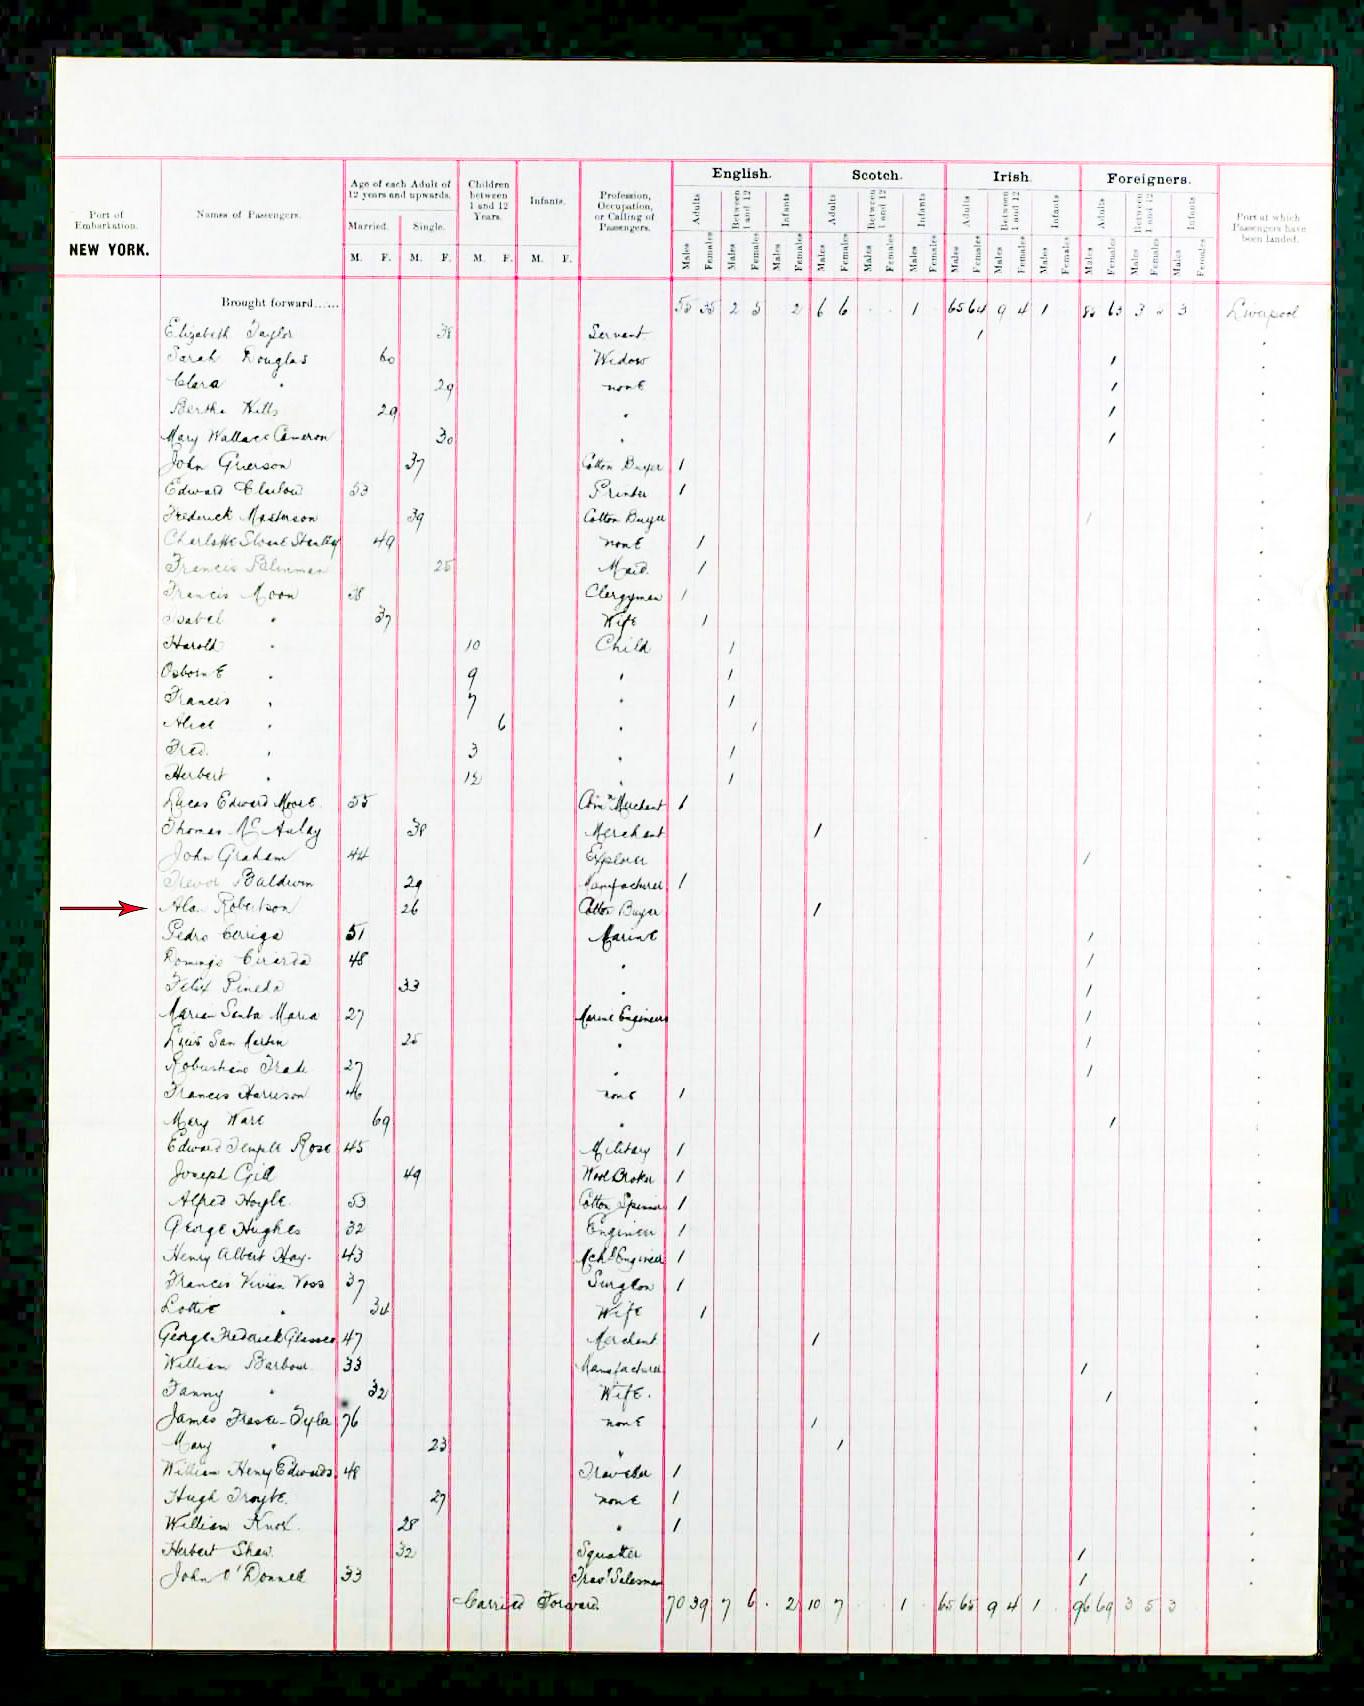 Port of Embarkation. NEW YORK. Names of Passengers. Age of each Adult of 12 years and upwards. Married. Single. Children between 1 and 12 Years. Infants. Profession, Occupation, or Calling of Passengers. English. Scotch. Irish. Foreigners. Port at which Passengers have been landed.
Adults Between 1 and 12 Infants Adults Between 1 and 12 Infants Adults Between 1 and 12 Infants Adults Between 1 and 12 Infants
M. F. M. F. M. F. M. F. Males Females Males Females Males Females Males Females Males Females Males Females Males Females Males Females Males Females Males Females Males Females Males Females
Brought forward...... 55 35 2 5 2 6 6 1 65 64 9 4 1 63 3 3 Liverpool
Elizabeth Taylor 38 Servant 1
Sarah Douglas 60 Widow 1
Clara " 29 none 1
Bertha 29 " 1
Mary Wallace Cameron 30 " 1
John Grierson 37 Cotton Buyer 1
Edward 53 Printer 1
Frederick Masterson 39 Cotton Buyer 1
Charlotte Sloane Stanley 49 none 1
Francis 25 Maid. 1
Francis Moon 38 Clergyman 1
Isabel " 37 Wife 1
Harold " 10 Child 1
Osborne " 9 " 1
Francis " 7 " 1
Alice " 6 " 1
Fred. " 3 " 1
Herbert " 12 " 1
Lucas Edward Moore 55 Comn Merchant 1
Thomas McAulay 38 Merchant 1
John Graham 44 Explorer 1
Trevor Baldwin 29 Manufacturer 1
Robertson 26 Cotton Buyer 1
Pedro 51 Marine 1
Domingo 48 " 1
Felix Pineda 33 " 1
Santa Maria 27 Marine Engineers 1
Luis San Martin 25 " 1
Robustiano 27 " 1
Francis Harrison 46 none 1
Mary Ware 69 " 1
Edward Temple Rose 45 Military 1
Joseph Gill 49 Wool Broker 1
Alfred Hoyle 53 Cotton Spinner 1
George Hughes 32 Engineer 1
Henry Albert Hay. 43 Mchl Engineer 1
Francis Vivian Voss 37 Surgeon 1
Lottie " 34 Wife 1
George Frederick 47 Merchant 1
William Barbour 33 Manufacturer 1
Fanny " 32 Wife. 1
James Fraser-Tytler 76 none 1
Mary " 23 " 1
William Henry Edwards 48 Traveler 1
Hugh Troyte. 27 none 1
William Knox. 28 " 1
Herbert Shaw. 32 Squatter 1
John O'Donnell 33 Trav' Salesman 1
Carried Forward. 70 39 7 6 2 10 7 1 65 65 9 4 1 96 69 3 5 3